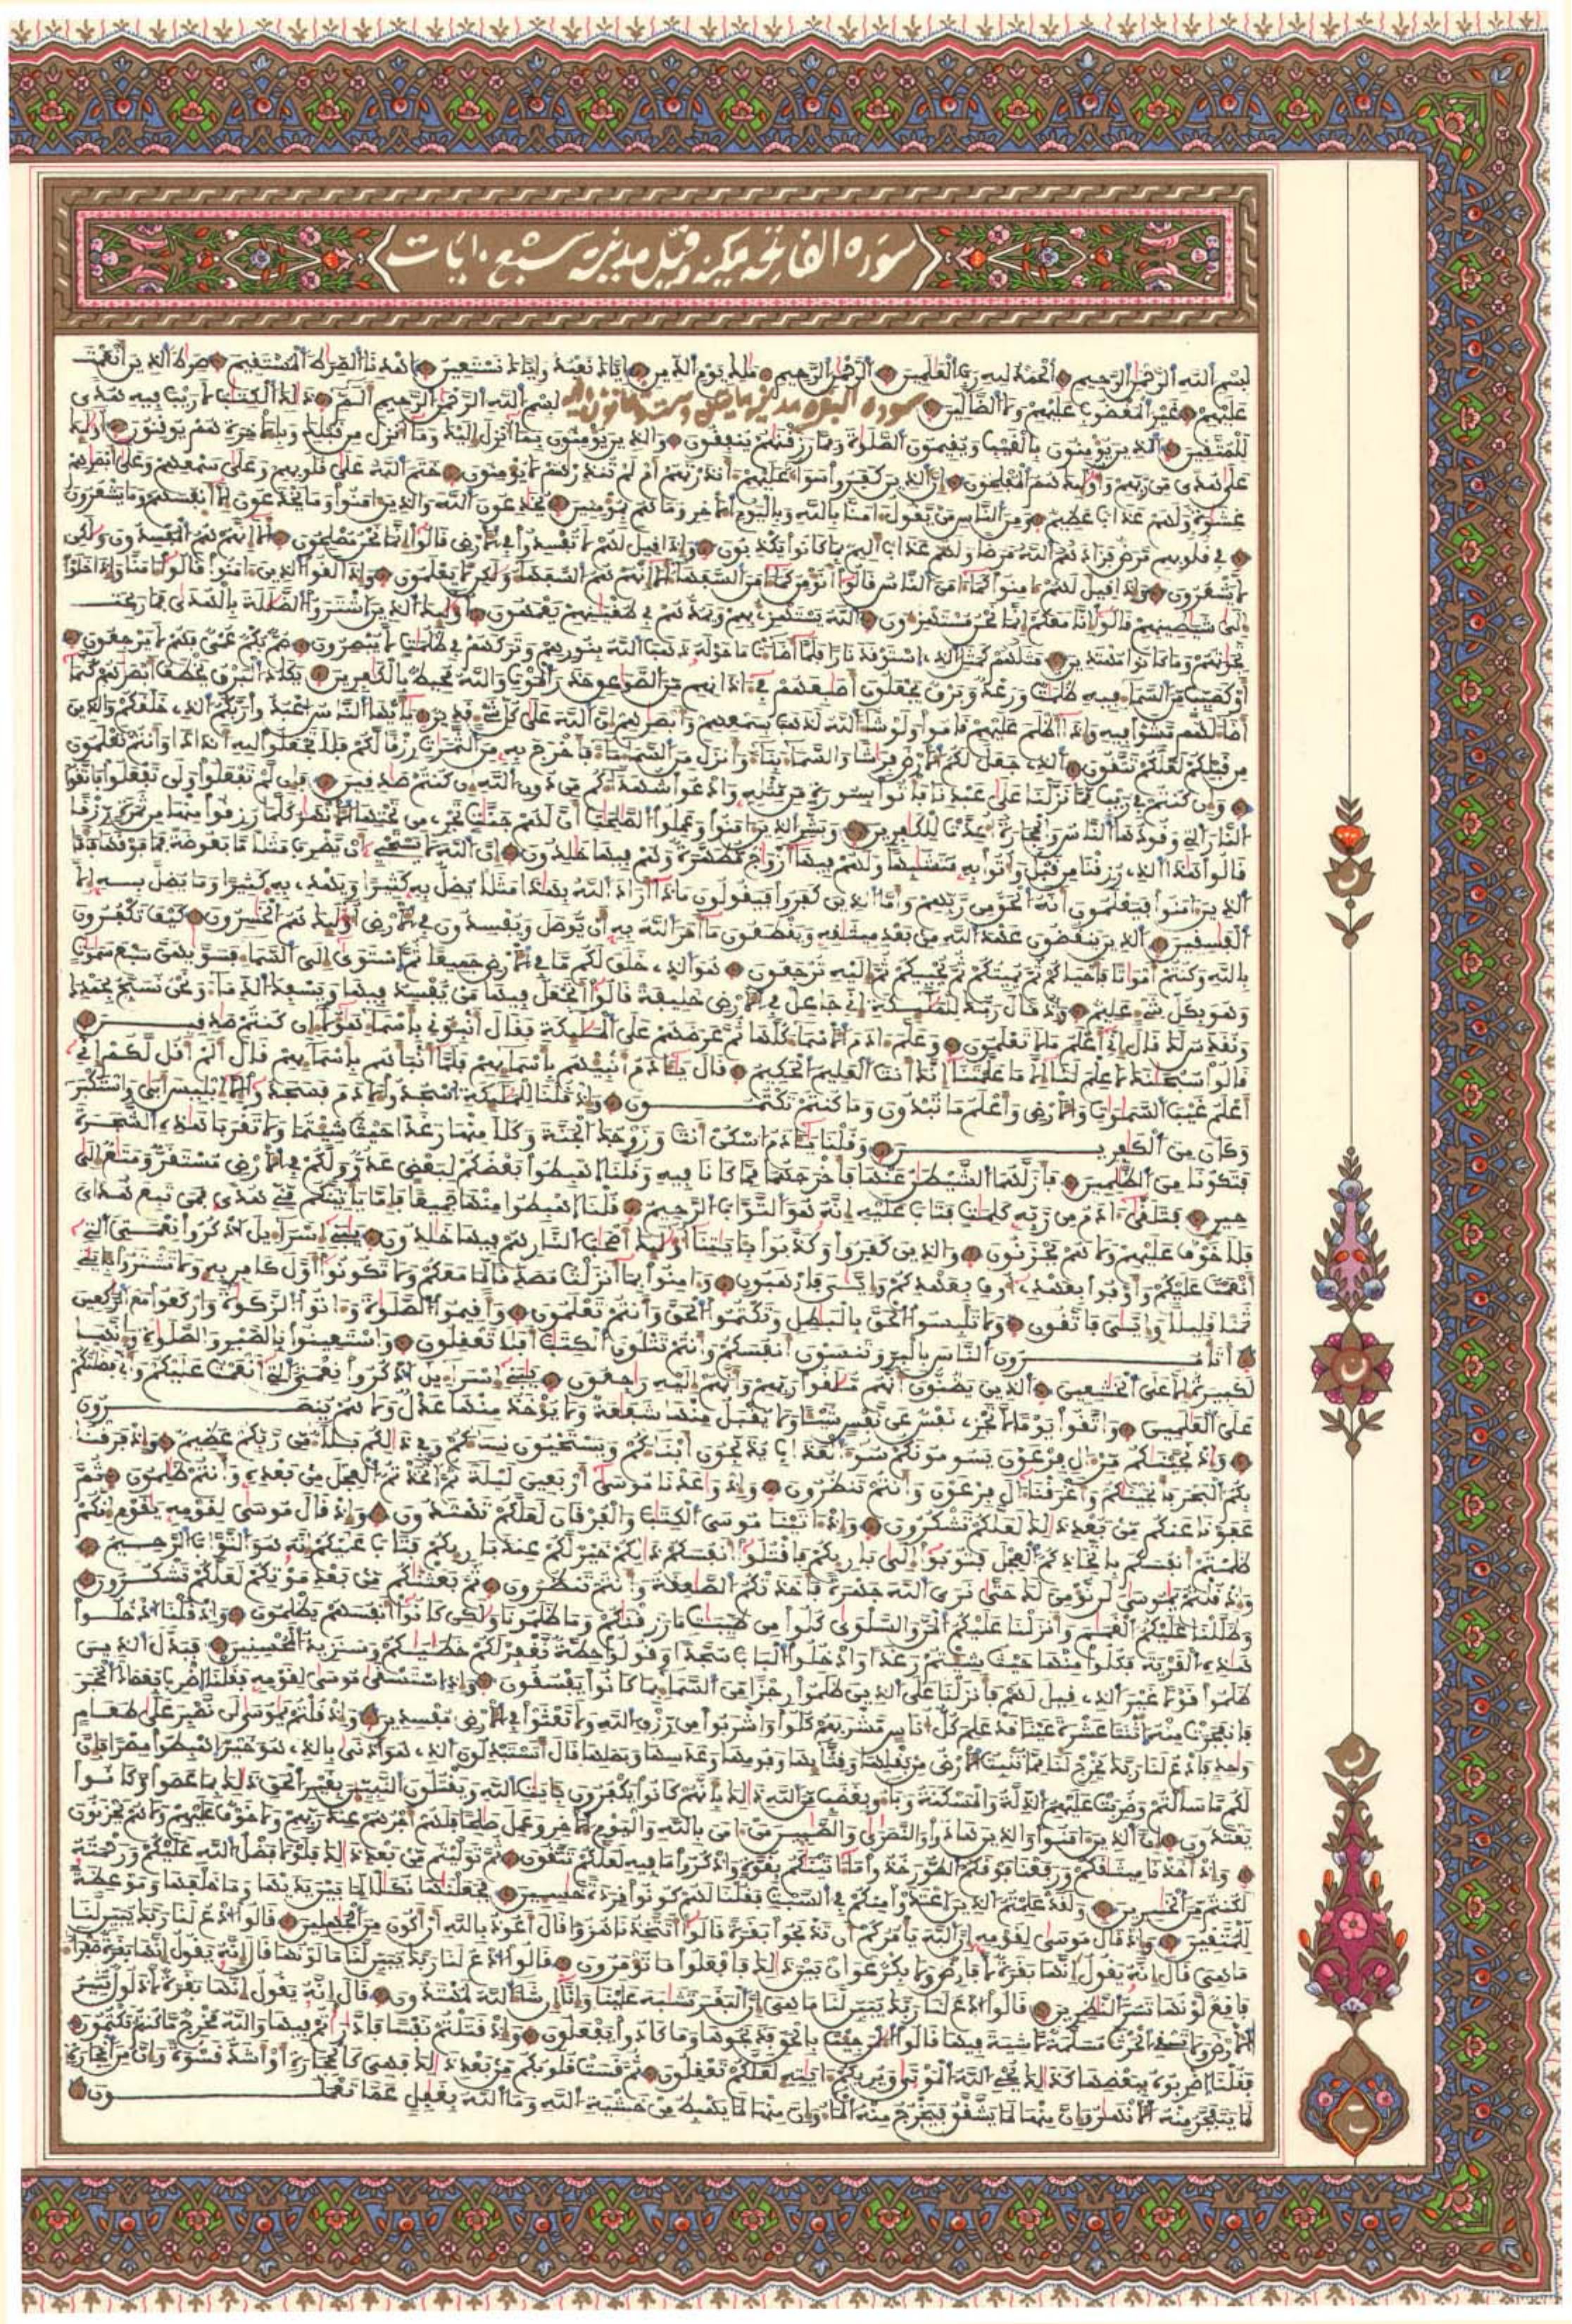 سورة الفاتحة مكية وقيل مدنية سبع ءايات
بسم الله الرحمن الرحيم الحمد لله رب العلمين الرحمن الرحيم ملك يوم الدين إياك نعبد وإياك نستعين اهدنا الصرط المستقيم صرط الذين أنعمت
عليهم غير المغضوب عليهم ولا الضالين سورة البقرة مدنية بسم الله الرحمن الرحيم الم ذلك الكتب لا ريب فيه هدى
للمتقين الذين يؤمنون بالغيب ويقيمون الصلوة ومما رزقنهم ينفقون والذين يؤمنون بما أنزل إليك وما أنزل من قبلك وبالأخرة هم يوقنون أولئك
على هدى من ربهم وأولئك هم المفلحون إن الذين كفروا سواء عليهم ءأنذرتهم أم لم تنذرهم لا يؤمنون ختم الله على قلوبهم وعلى سمعهم وعلى أبصرهم
غشوة ولهم عذاب عظيم ومن الناس من يقول ءامنا بالله وباليوم الأخر وما هم بمؤمنين يخدعون الله والذين ءامنوا وما يخدعون إلا أنفسهم وما يشعرون
في قلوبهم مرض فزادهم الله مرضا ولهم عذاب أليم بما كانوا يكذبون وإذا قيل لهم لا تفسدوا في الأرض قالوا إنما نحن مصلحون ألا إنهم هم المفسدون ولكن
لا يشعرون وإذا قيل لهم ءامنوا كما ءامن الناس قالوا أنؤمن كما ءامن السفهاء ألا إنهم هم السفهاء ولكن لا يعلمون وإذا لقوا الذين ءامنوا قالوا ءامنا وإذا خلوا
إلى شيطينهم قالوا إنا معكم إنما نحن مستهزءون الله يستهزئ بهم ويمدهم في طغينهم يعمهون أولئك الذين اشتروا الضللة بالهدى فما ربحت
تجرتهم وما كانوا مهتدين مثلهم كمثل الذي استوقد نارا فلما أضاءت ما حوله ذهب الله بنورهم وتركهم في ظلمت لا يبصرون صم بكم عمي فهم لا يرجعون
أو كصيب من السماء فيه ظلمت ورعد وبرق يجعلون أصبعهم في ءاذانهم من الصوعق حذر الموت والله محيط بالكفرين يكاد البرق يخطف أبصرهم كلما
أضاء لهم مشوا فيه وإذا أظلم عليهم قاموا ولو شاء الله لذهب بسمعهم وأبصرهم إن الله على كل شيء قدير يأيها الناس اعبدوا ربكم الذي خلقكم والذين
من قبلكم لعلكم تتقون الذي جعل لكم الأرض فرشا والسماء بناء وأنزل من السماء ماء فأخرج به من الثمرت رزقا لكم فلا تجعلوا لله أندادا وأنتم تعلمون
وإن كنتم في ريب مما نزلنا على عبدنا فأتوا بسورة من مثله وادعوا شهداءكم من دون الله إن كنتم صدقين فإن لم تفعلوا ولن تفعلوا فاتقوا
النار التي وقودها الناس والحجارة أعدت للكفرين وبشر الذين ءامنوا وعملوا الصلحت أن لهم جنت تجري من تحتها الأنهر كلما رزقوا منها من ثمرة رزقا
قالوا هذا الذي رزقنا من قبل وأتوا به متشبها ولهم فيها أزوج مطهرة وهم فيها خلدون إن الله لا يستحي أن يضرب مثلا ما بعوضة فما فوقها فأما
الذين ءامنوا فيعلمون أنه الحق من ربهم وأما الذين كفروا فيقولون ماذا أراد الله بهذا مثلا يضل به كثيرا ويهدي به كثيرا وما يضل به إلا
الفسقين الذين ينقضون عهد الله من بعد ميثقه ويقطعون ما أمر الله به أن يوصل ويفسدون في الأرض أولئك هم الخسرون كيف تكفرون
بالله وكنتم أموتا فأحيكم ثم يميتكم ثم يحييكم ثم إليه ترجعون هو الذي خلق لكم ما في الأرض جميعا ثم استوى إلى السماء فسويهن سبع سموت
وهو بكل شيء عليم وإذ قال ربك للملئكة إني جاعل في الأرض خليفة قالوا أتجعل فيها من يفسد فيها ويسفك الدماء ونحن نسبح بحمدك
ونقدس لك قال إني أعلم ما لا تعلمون وعلم ءادم الأسماء كلها ثم عرضهم على الملئكة فقال أنبئوني بأسماء هؤلاء إن كنتم صدقين
قالوا سبحنك لا علم لنا إلا ما علمتنا إنك أنت العليم الحكيم قال يادم أنبئهم بأسمائهم فلما أنبأهم بأسمائهم قال ألم أقل لكم إني
أعلم غيب السموت والأرض وأعلم ما تبدون وما كنتم تكتمون وإذ قلنا للملئكة اسجدوا لأدم فسجدوا إلا إبليس أبى واستكبر
وكان من الكفرين وقلنا يادم اسكن أنت وزوجك الجنة وكلا منها رغدا حيث شئتما ولا تقربا هذه الشجرة
فتكونا من الظلمين فأزلهما الشيطن عنها فأخرجهما مما كانا فيه وقلنا اهبطوا بعضكم لبعض عدو ولكم في الأرض مستقر ومتع إلى
حين فتلقى ءادم من ربه كلمت فتاب عليه إنه هو التواب الرحيم قلنا اهبطوا منها جميعا فإما يأتينكم مني هدى فمن تبع هداي
فلا خوف عليهم ولا هم يحزنون والذين كفروا وكذبوا بايتنا أولئك أصحب النار هم فيها خلدون يبني إسراءيل اذكروا نعمتي التي
أنعمت عليكم وأوفوا بعهدي أوف بعهدكم وإيي فارهبون وءامنوا بما أنزلت مصدقا لما معكم ولا تكونوا أول كافر به ولا تشتروا بايتي
ثمنا قليلا وإيي فاتقون ولا تلبسوا الحق بالبطل وتكتموا الحق وأنتم تعلمون وأقيموا الصلوة وءاتوا الزكوة واركعوا مع الركعين
أتأمرون الناس بالبر وتنسون أنفسكم وأنتم تتلون الكتب أفلا تعقلون واستعينوا بالصبر والصلوة وإنها
لكبيرة إلا على الخشعين الذين يظنون أنهم ملقوا ربهم وأنهم إليه رجعون يبني إسراءيل اذكروا نعمتي التي أنعمت عليكم وأني فضلتكم
على العلمين واتقوا يوما لا تجزي نفس عن نفس شيئا ولا يقبل منها شفعة ولا يؤخذ منها عدل ولا هم ينصرون
وإذ نجينكم من ءال فرعون يسومونكم سوء العذاب يذبحون أبناءكم ويستحيون نساءكم وفي ذلكم بلاء من ربكم عظيم وإذ فرقنا
بكم البحر فأنجينكم وأغرقنا ءال فرعون وأنتم تنظرون وإذ وعدنا موسى أربعين ليلة ثم اتخذتم العجل من بعده وأنتم ظلمون ثم
عفونا عنكم من بعد ذلك لعلكم تشكرون وإذ ءاتينا موسى الكتب والفرقان لعلكم تهتدون وإذ قال موسى لقومه يقوم إنكم
ظلمتم أنفسكم باتخاذكم العجل فتوبوا إلى بارئكم فاقتلوا أنفسكم ذلكم خير لكم عند بارئكم فتاب عليكم إنه هو التواب الرحيم
وإذ قلتم يموسى لن نؤمن لك حتى نرى الله جهرة فأخذتكم الصعقة وأنتم تنظرون ثم بعثنكم من بعد موتكم لعلكم تشكرون
وظللنا عليكم الغمم وأنزلنا عليكم المن والسلوى كلوا من طيبت ما رزقنكم وما ظلمونا ولكن كانوا أنفسهم يظلمون وإذ قلنا ادخلوا
هذه القرية فكلوا منها حيث شئتم رغدا وادخلوا الباب سجدا وقولوا حطة نغفر لكم خطيكم وسنزيد المحسنين فبدل الذين
ظلموا قولا غير الذي قيل لهم فأنزلنا على الذين ظلموا رجزا من السماء بما كانوا يفسقون وإذ استسقى موسى لقومه فقلنا اضرب بعصاك الحجر
فانفجرت منه اثنتا عشرة عينا قد علم كل أناس مشربهم كلوا واشربوا من رزق الله ولا تعثوا في الأرض مفسدين وإذ قلتم يموسى لن نصبر على طعام
وحد فادع لنا ربك يخرج لنا مما تنبت الأرض من بقلها وقثائها وفومها وعدسها وبصلها قال أتستبدلون الذي هو أدنى بالذي هو خير اهبطوا مصرا فإن
لكم ما سألتم وضربت عليهم الذلة والمسكنة وباءو بغضب من الله ذلك بأنهم كانوا يكفرون بايت الله ويقتلون النبين بغير الحق ذلك بما عصوا وكانوا
يعتدون إن الذين ءامنوا والذين هادوا والنصرى والصبين من ءامن بالله واليوم الأخر وعمل صلحا فلهم أجرهم عند ربهم ولا خوف عليهم ولا هم يحزنون
وإذ أخذنا ميثقكم ورفعنا فوقكم الطور خذوا ما ءاتينكم بقوة واذكروا ما فيه لعلكم تتقون ثم توليتم من بعد ذلك فلولا فضل الله عليكم ورحمته
لكنتم من الخسرين ولقد علمتم الذين اعتدوا منكم في السبت فقلنا لهم كونوا قردة خسئين فجعلنها نكلا لما بين يديها وما خلفها وموعظة
للمتقين وإذ قال موسى لقومه إن الله يأمركم أن تذبحوا بقرة قالوا أتتخذنا هزوا قال أعوذ بالله أن أكون من الجهلين قالوا ادع لنا ربك يبين لنا
ما هي قال إنه يقول إنها بقرة لا فارض ولا بكر عوان بين ذلك فافعلوا ما تؤمرون قالوا ادع لنا ربك يبين لنا ما لونها قال إنه يقول إنها بقرة صفراء
فاقع لونها تسر النظرين قالوا ادع لنا ربك يبين لنا ما هي إن البقر تشبه علينا وإنا إن شاء الله لمهتدون قال إنه يقول إنها بقرة لا ذلول تثير
الأرض ولا تسقي الحرث مسلمة لا شية فيها قالوا الن جئت بالحق فذبحوها وما كادوا يفعلون وإذ قتلتم نفسا فادرءتم فيها والله مخرج ما كنتم تكتمون
فقلنا اضربوه ببعضها كذلك يحي الله الموتى ويريكم ءايته لعلكم تعقلون ثم قست قلوبكم من بعد ذلك فهي كالحجارة أو أشد قسوة وإن من الحجارة
لما يتفجر منه الأنهر وإن منها لما يشقق فيخرج منه الماء وإن منها لما يهبط من خشية الله وما الله بغفل عما تعملون